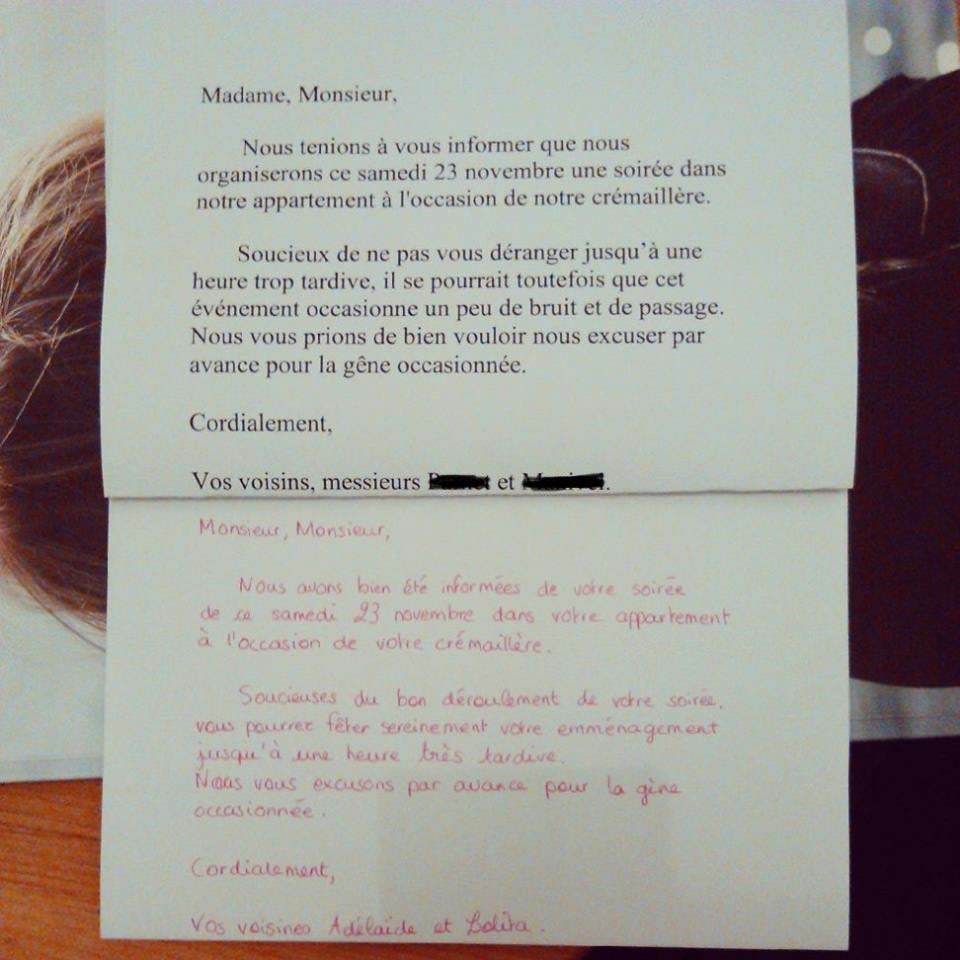 Madame, Monsieur,
Nous tenions à vous informer que nous
organiserons ce samedi 23 novembre une soirée dans
notre appartement à l'occasion de notre crémaillère.
Soucieux de ne pas vous déranger jusqu'à une
heure trop tardive, il se pourrait toutefois que cet
événement occasionne un peu de bruit et de passage.
Nous vous prions de bien vouloir nous excuser par
avance pour la gêne occasionnée.
Cordialement,
Vos voisins, messieurs et
Monsieur, Monsieur,
Nous avons bien été informées de votre soirée
de ce samedi 23 novembre dans votre appartement
à l'occasion de votre crémaillère.
Soucieuses du bon déroulement de votre soirée,
vous pourrez fêter sereinement votre emménagement
jusqu'à une heure très tardive.
Nous vous excusons par avance pour la gène
occasionnée.
Cordialement,
Vos voisines Adélaïde et Lolita.